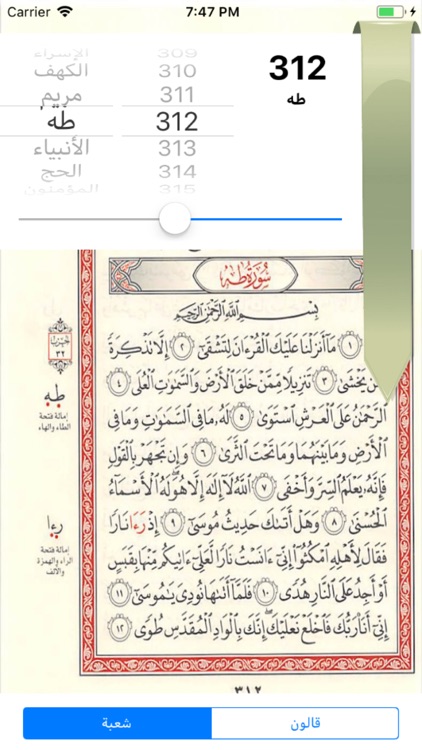 Carrier 7:47 PM
الإسراء 309
الكهف 310
مريم 311
طه 312
الأنبياء 313
الحج 314
المؤمنون 315
312
طه
سُورَةُ طه
بِسْمِ اللَّهِ الرَّحْمَٰنِ الرَّحِيمِ
١ مَا أَنزَلْنَا عَلَيْكَ الْقُرْءَانَ لِتَشْقَىٰ ٢ إِلَّا تَذْكِرَةً
يَخْشَىٰ ٣ تَنزِيلًا مِّمَّنْ خَلَقَ الْأَرْضَ وَالسَّمَٰوَٰتِ الْعُلَى ٤
الرَّحْمَٰنُ عَلَى الْعَرْشِ اسْتَوَىٰ ٥ لَهُ مَا فِي السَّمَٰوَٰتِ وَمَا فِي
الْأَرْضِ وَمَا بَيْنَهُمَا وَمَا تَحْتَ الثَّرَىٰ ٦ وَإِن تَجْهَرْ بِالْقَوْلِ
فَإِنَّهُ يَعْلَمُ السِّرَّ وَأَخْفَى ٧ اللَّهُ لَا إِلَٰهَ إِلَّا هُوَ لَهُ الْأَسْمَاءُ
الْحُسْنَىٰ ٨ وَهَلْ أَتَىٰكَ حَدِيثُ مُوسَىٰ ٩ إِذْ رَءَا نَارًا
فَقَالَ لِأَهْلِهِ امْكُثُوا إِنِّي ءَانَسْتُ نَارًا لَّعَلِّي ءَاتِيكُم مِّنْهَا بِقَبَسٍ
أَوْ أَجِدُ عَلَى النَّارِ هُدًى ١٠ فَلَمَّا أَتَىٰهَا نُودِيَ يَٰمُوسَىٰ ١١
إِنِّي أَنَا رَبُّكَ فَاخْلَعْ نَعْلَيْكَ إِنَّكَ بِالْوَادِ الْمُقَدَّسِ طُوًى ١٢
٣٢
طه
إمالة فتحة
الطاء والهاء
رءا
إمالة فتحة
الراء والهمزة
والألف
٣١٢
شعبة قالون